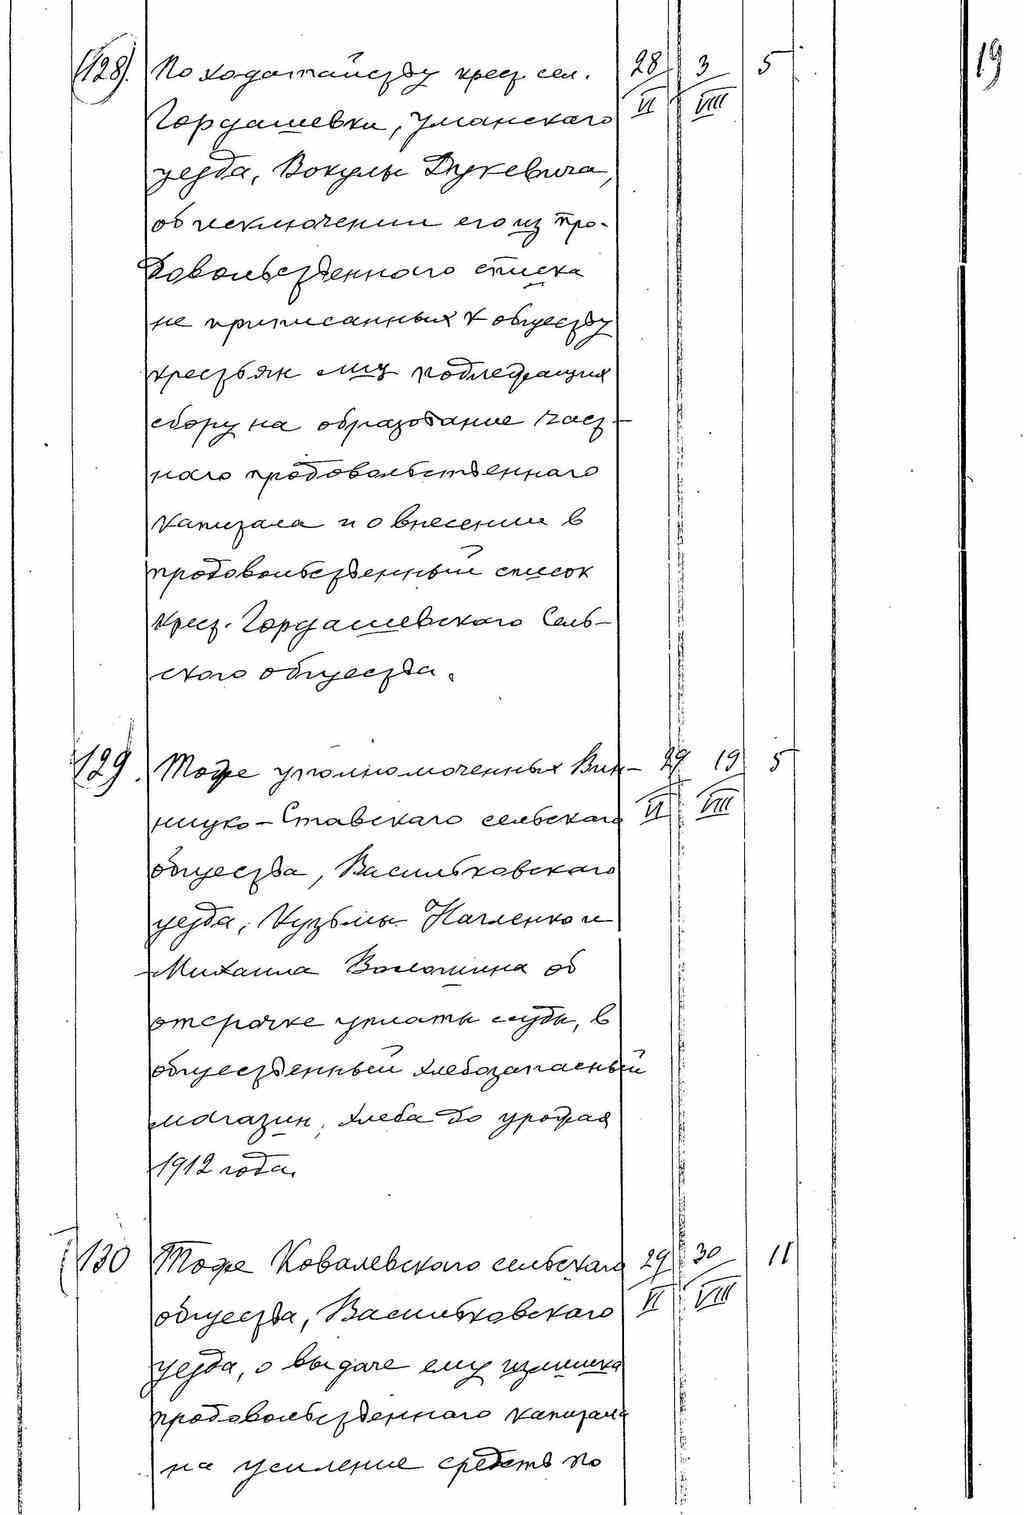 19
(128). По ходатайству крест. сел. 28/VI 3/VIII 5
Гордашевки, Уманскаго
уезда, Вокулы Дукевича,
об исключении его из про-
довольственного списка
не приписанных к обществу
крестьян лиц подлежащих
сбору на образование част-
ного продовольственнаго
капитала и о внесении в
продовольственный список
крест. Гордашевского Сель-
ского общества.
129. Тоже уполномоченных Вин- 29/VI 19/VIII 5
ницко-Ставскаго сельскаго
общества, Васильковскаго
уезда, Кузьмы и
Михаила Волошина об
отсрочке уплаты ссуды, в
общественный хлебозапасный
магазин, хлеба до урожая
1912 года.
130 Тоже Ковалевского сельскаго 29/VI 30/VIII 11
общества, Васильковскаго
уезда, о выдаче ему излишка
продовольственнаго капитала
на усиление средств по